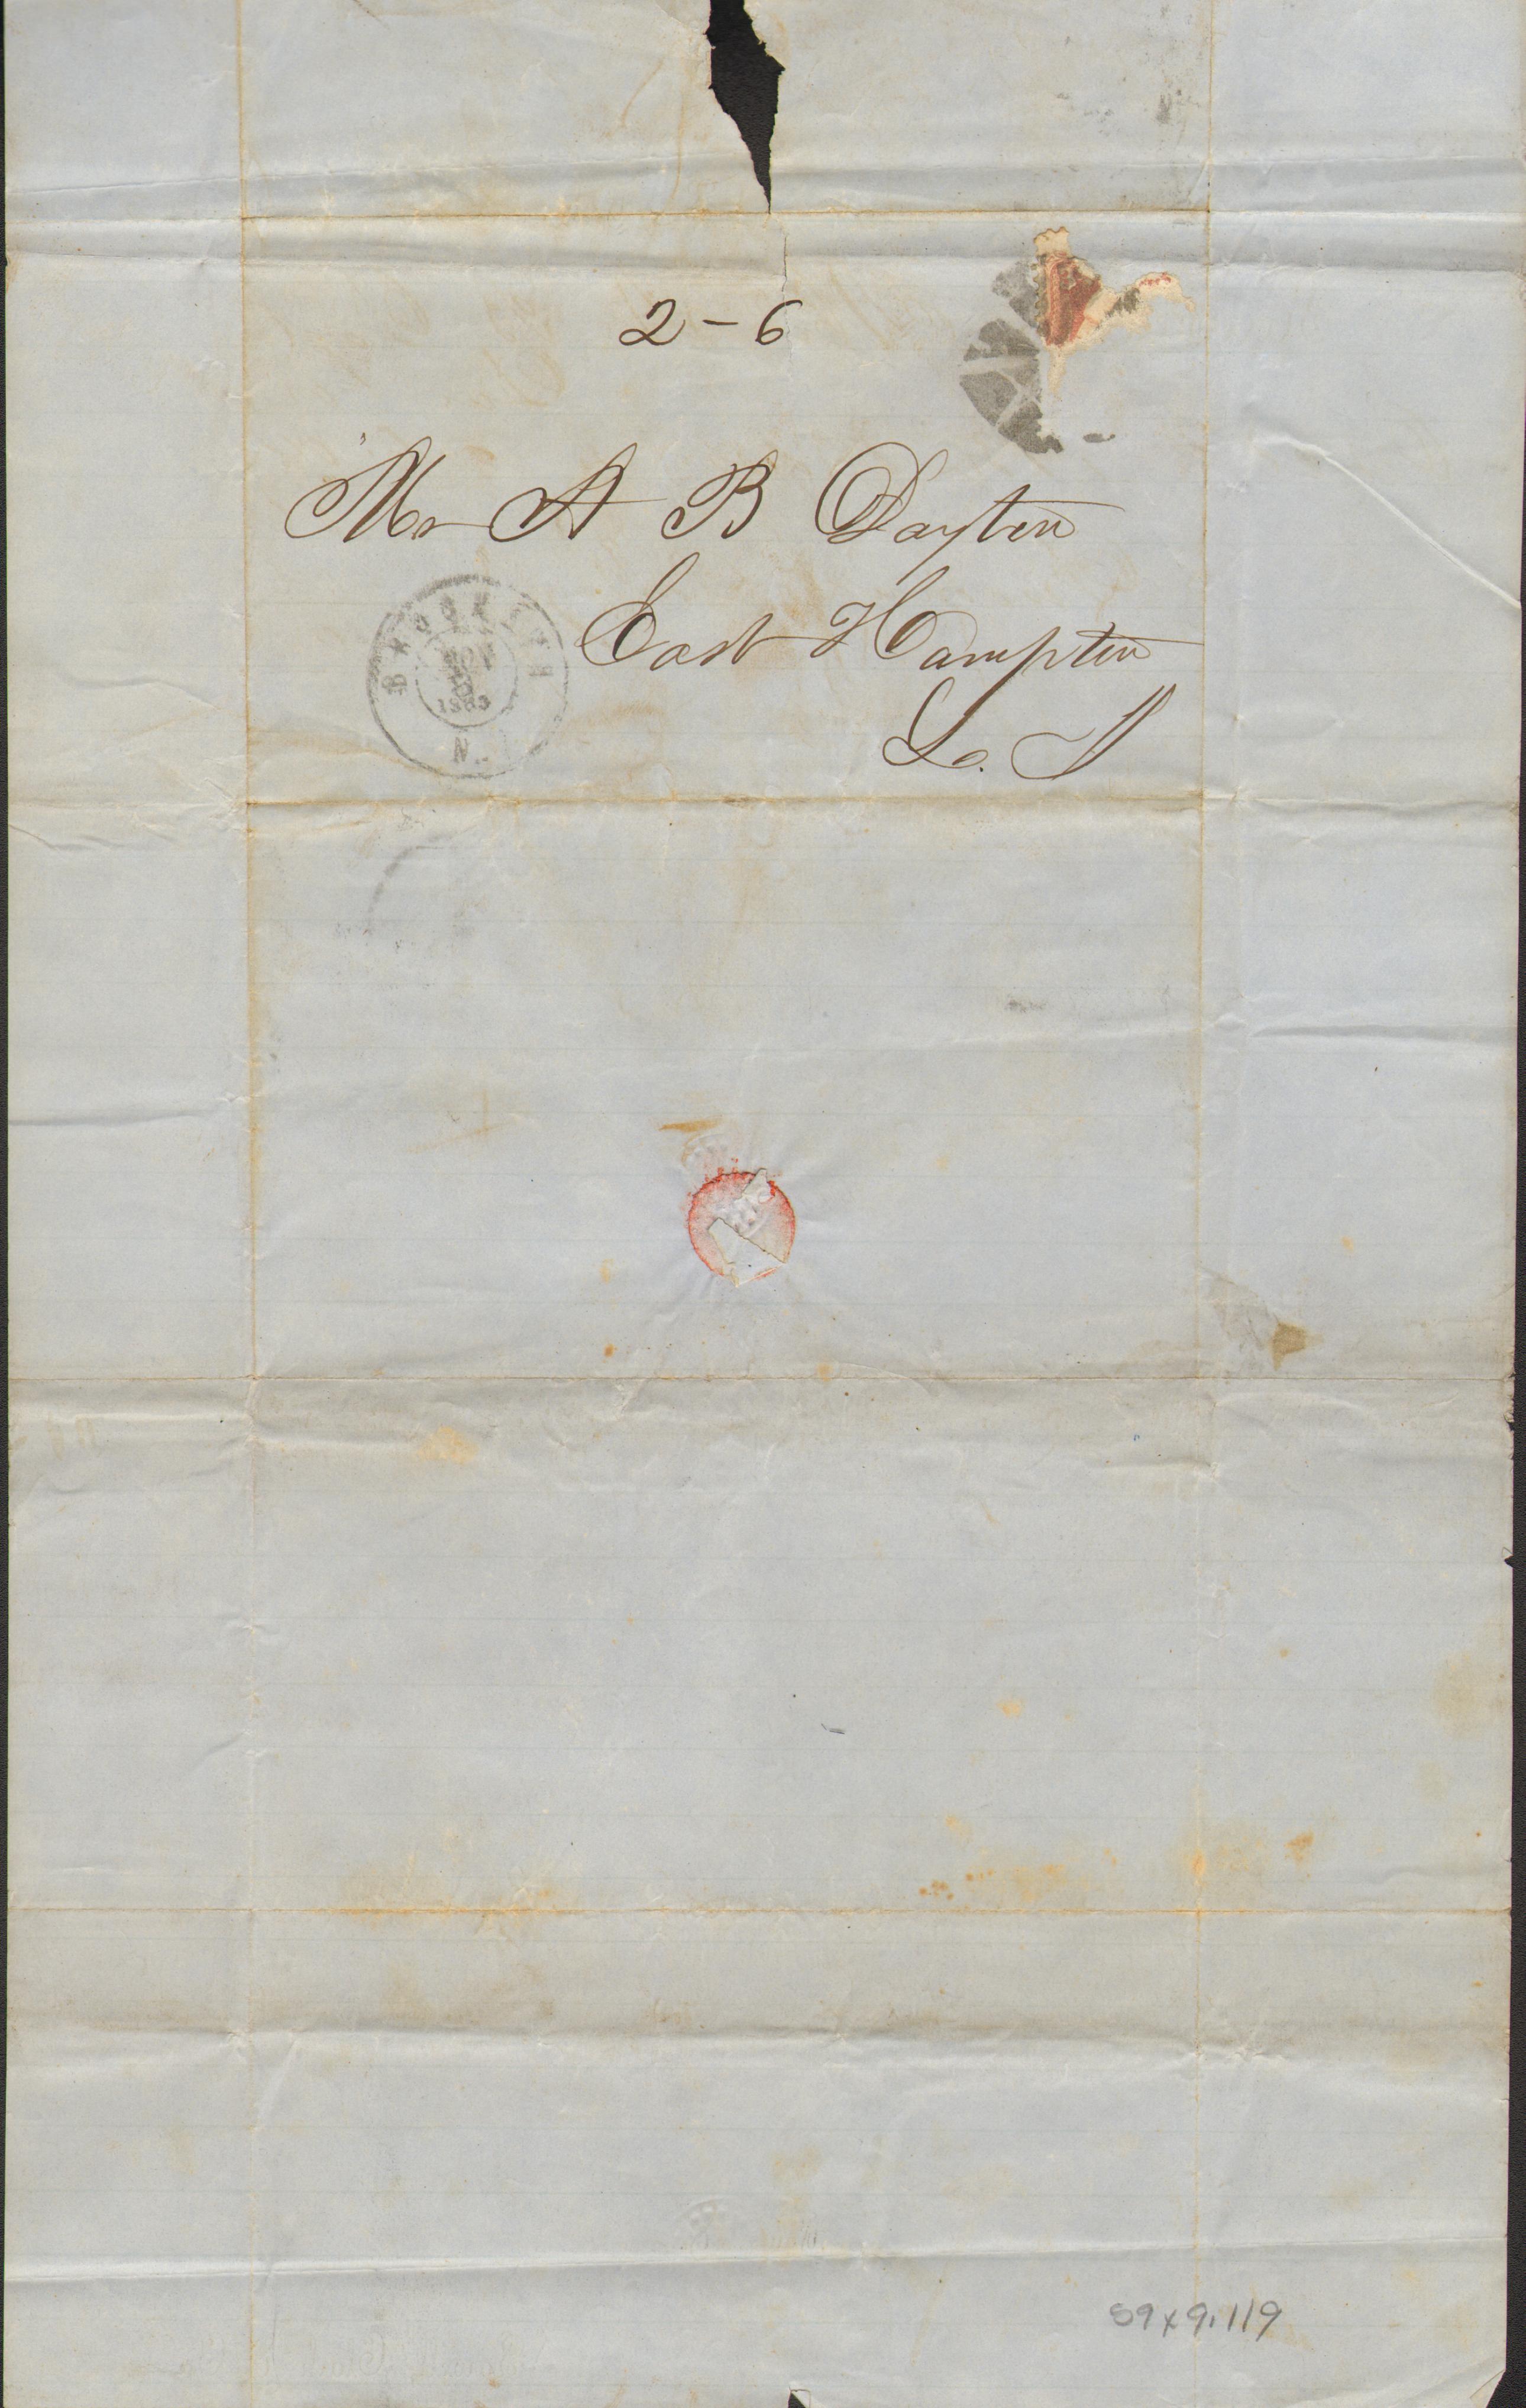 2-6
Mr A B Dayton
East Hampton
L. I
BROOKLYN
1865
N.
59x9.119